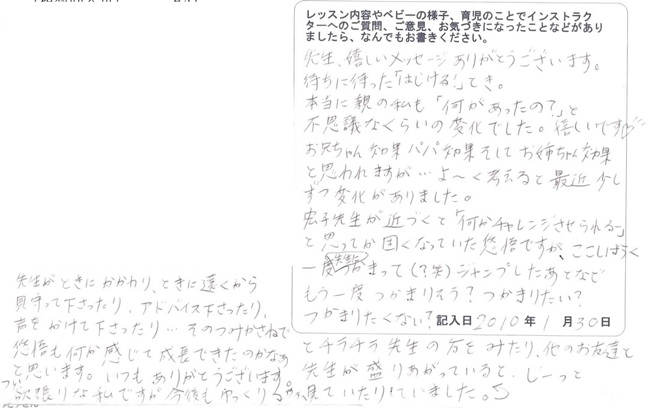 レッスン内容やベビーの様子、育児のことでインストラク
ターへのご質問、ご意見、お気づきになったことなどがあり
ましたら、なんでもお書きください。
先生、嬉しいメッセージありがとうございます。
待ちに待った「はじける!」とき。
本当に親の私も「何があったの?」と
不思議なくらいの変化でした。嬉しいです♡
お兄ちゃん効果パパ効果そしてお姉ちゃん効果
と思われますが…よ~く考えると最近少し
ずつ変化がありました。
宏子先生が近づくと「何かチャレンジさせられる~」
と思ってか固くなっていた悠悟ですが、ここしばらく
一度つかまって(?笑)ジャンプしたあとなど
もう一度つかまりそう?つかまりたい?
つかまりたくない?
記入日2010年1月30日
とチラチラ先生の方をみたり、他のお友達と
先生が盛りあがっていると、じーっと
見ていたりしていました。
先生がときにかかわり、ときに遠くから
見守って下さったり、アドバイス下さったり、
声をかけて下さったり…そのつみかさねで
悠悟も何か感じて成長できたのかなぁ
と思います。いつもありがとうございます。
欲張りな私ですが今後もゆっくり